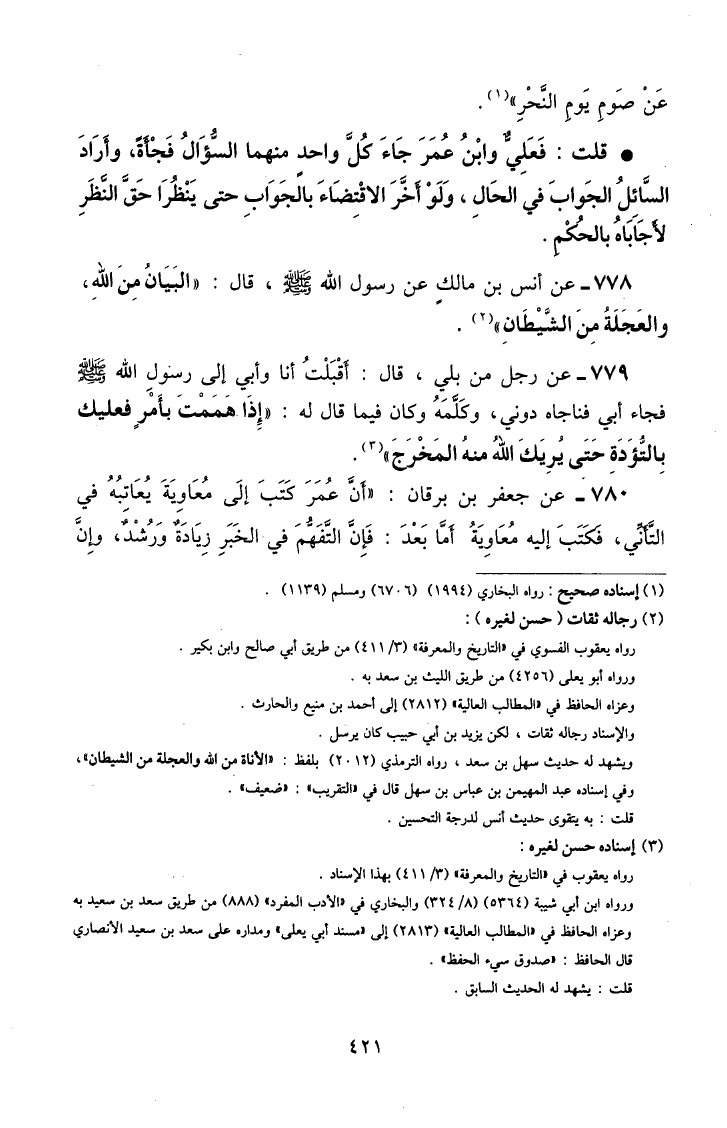 عَنْ صَوْمِ يَوْمِ النَّحْرِ»(١) .
● قلت : فَعَلِيٌّ وابْنُ عُمَرَ جَاءَ كُلَّ واحدٍ منهما السُّؤَالُ فَجْأَةً، وأَرَادَ
السَّائِلُ الجَوابَ في الحَالِ ، ولَوْ أَخَّرَ الاقْتِضَاءَ بالجَوَابِ حتى يَنْظُرَا حَقَّ النَّظَرِ
لأَجَابَاهُ بالحُكْمِ .
٧٧٨ ـ عن أنس بن مالكٍ عن رسول الله ﷺ ، قال : «البَيَانُ مِنَ اللهِ،
والعَجَلَةُ مِنَ الشَّيْطَانِ»(٢) .
٧٧٩ ـ عن رجل من بلي ، قال : أَقْبَلْتُ أنا وأبي إلى رسولِ الله ﷺ
فجاء أبي فناجاه دوني، وكَلَّمَهُ وكان فيما قال له : «إِذَا هَمَمْتَ بأَمْرٍ فعليك
بالتُّؤَدَةِ حَتَى يُرِيَكَ اللهُ منهُ المَخْرَجَ»(٣) .
٧٨٠ ـ عن جعفر بن برقان : «أَنَّ عُمَرَ كَتَبَ إِلَى مُعَاوِيَةَ يُعَاتِبُهُ في
التَّأَنِّي، فَكَتَبَ إليه مُعَاوِيَةُ أَمَّا بَعْدَ : فَإِنَّ التَّفَهُّمَ في الخَبَرِ زِيَادَةٌ وَرُشْدٌ، وإنَّ
(١) إسناده صحيح : رواه البخاري (١٩٩٤) (٦٧٠٦) ومسلم (١١٣٩) .
(٢) رجاله ثقات ( حسن لغيره ) :
رواه يعقوب الفسوي في «التاريخ والمعرفة» (٤١١/٣) من طريق أبي صالح وابن بكير .
ورواه أبو يعلى (٤٢٥٦) من طريق الليث بن سعد به .
وعزاه الحافظ في «المطالب العالية» (٢٨١٢) إلى أحمد بن منيع والحارث .
والإسناد رجاله ثقات ، لكن يزيد بن أبي حبيب كان يرسل .
ويشهد له حديث سهل بن سعد ، رواه الترمذي (٢٠١٢) بلفظ : «الأناة من الله والعجلة من الشيطان»،
وفي إسناده عبد المهيمن بن عباس بن سهل قال في «التقريب» : «ضعيف» .
قلت : به يتقوى حديث أنس لدرجة التحسين .
(٣) إسناده حسن لغيره :
رواه يعقوب في «التاريخ والمعرفة» (٤١١/٣) بهذا الإسناد .
ورواه ابن أبي شيبة (٥٣٦٤) (٣٢٤/٨) والبخاري في «الأدب المفرد» (٨٨٨) من طريق سعد بن سعيد به
وعزاه الحافظ في «المطالب العالية» (٢٨١٣) إلى «مسند أبي يعلى» ومداره على سعد بن سعيد الأنصاري
قال الحافظ : «صدوق سيء الحفظ» .
قلت : يشهد له الحديث السابق .
٤٢١